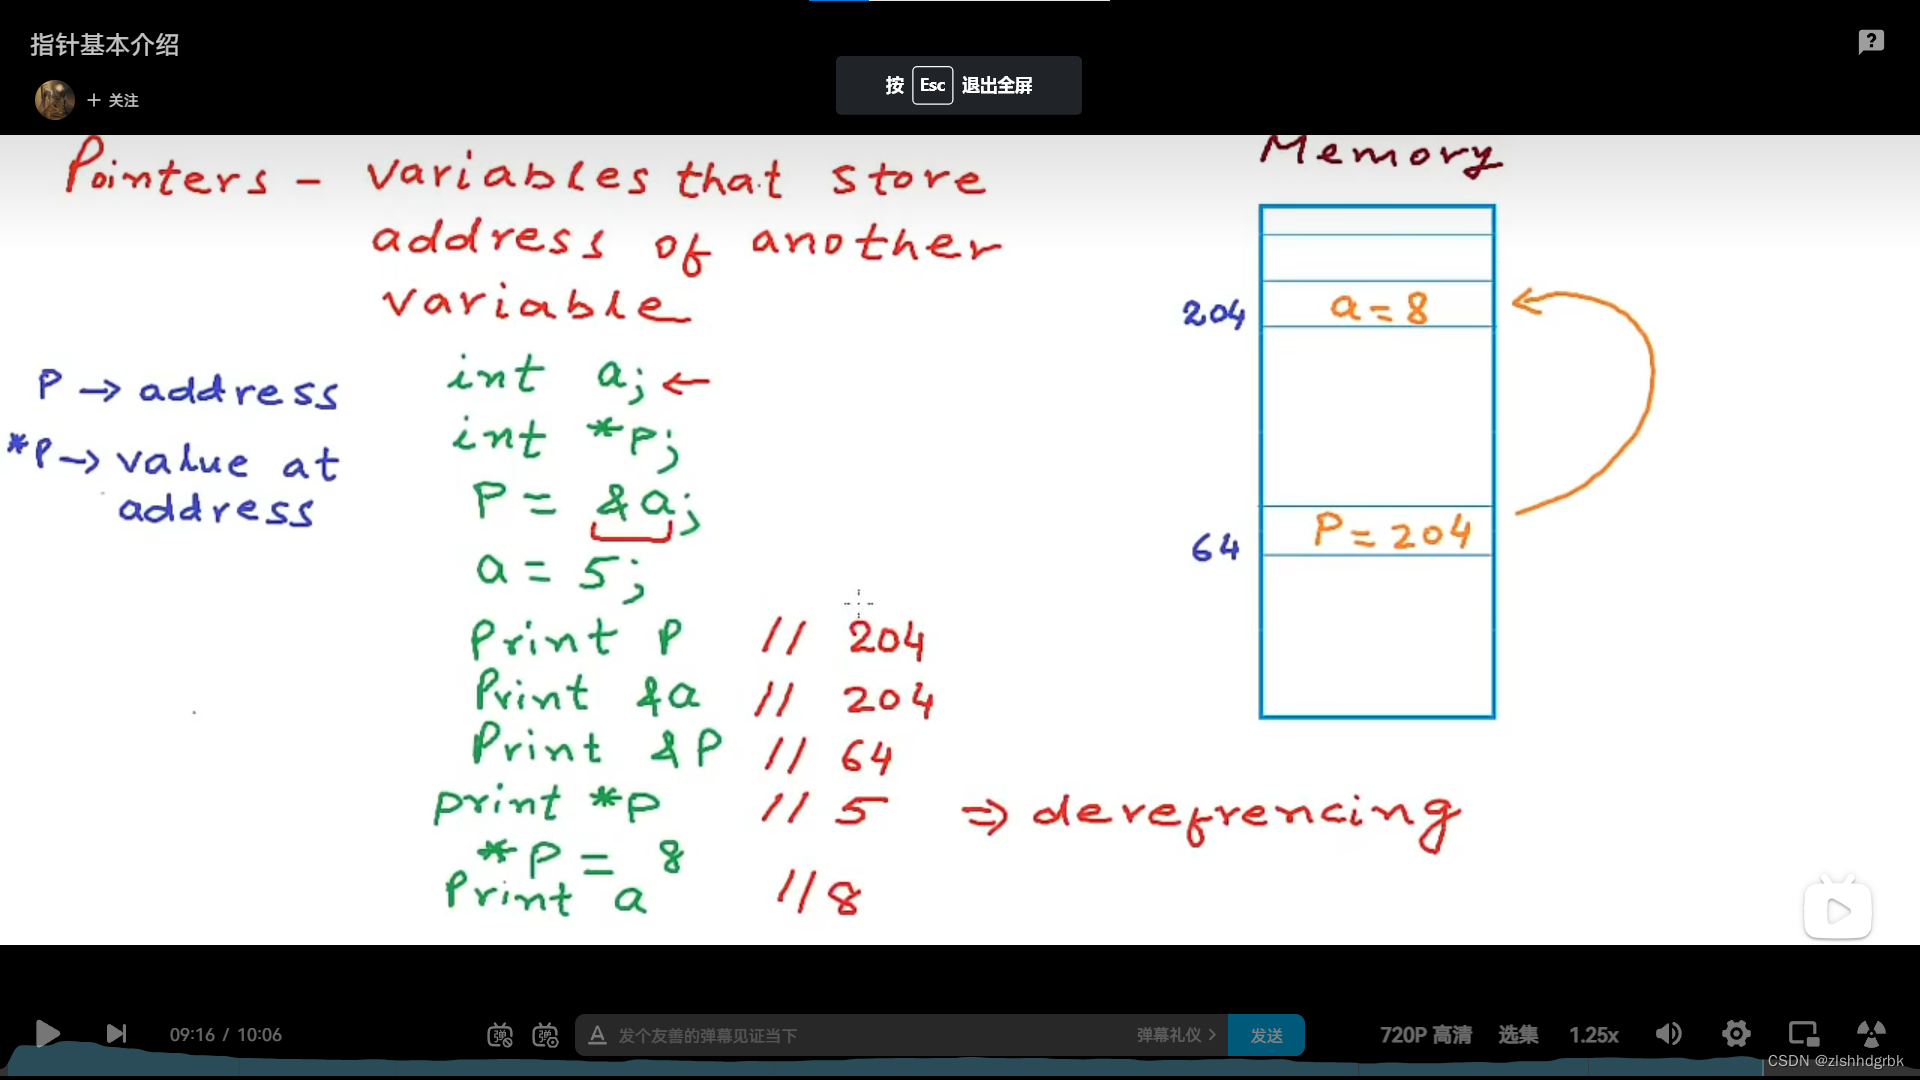 指针基本介绍
按 Esc 退出全屏
+ 关注
Pointers - variables that store
address of another
variable
Memory
204 a = 8
P → address
*P → value at
address
int a; ←
int *P;
P = &a;
a = 5;
64 P = 204
Print P // 204
Print &a // 204
Print &P // 64
print *P // 5 ⇒ derefrencing
*P = 8
Print a // 8
09:16 / 10:06
弹 弹
A 发个友善的弹幕见证当下 弹幕礼仪 > 发送
720P 高清 选集 1.25x
CSDN @zlshhdgrbk